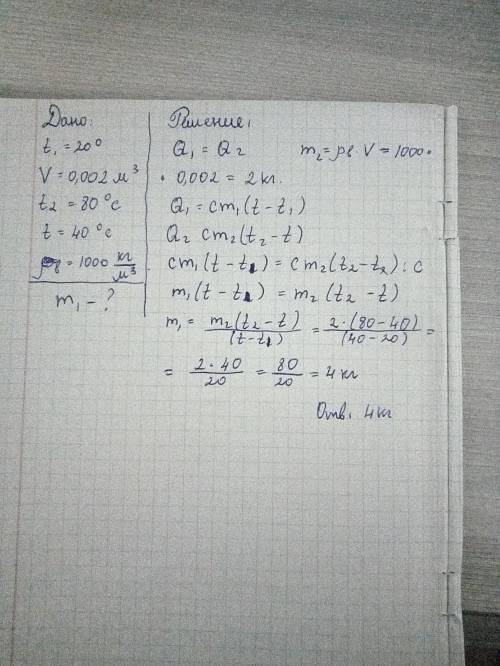 Дано:
t₁ = 20°
V = 0,002 м³
t₂ = 80 °С
t = 40 °С
= 1000 кг/м³
m₁ - ?
Решение:
Q₁ = Q₂    m₂ = ρв · V = 1000 ·
· 0,002 = 2 кг.
Q₁ = cm₁(t - t₁)
Q₂ cm₂(t₂ - t)
cm₁(t - t₁) = cm₂(t₂ - t₂) : c
m₁(t - t₁) = m₂(t₂ - t)
m₁ = m₂(t₂ - t)/(t - t₁) = 2 · (80 - 40)/(40 - 20) =
= 2 · 40/20 = 80/20 = 4 кг
Отв: 4 кг